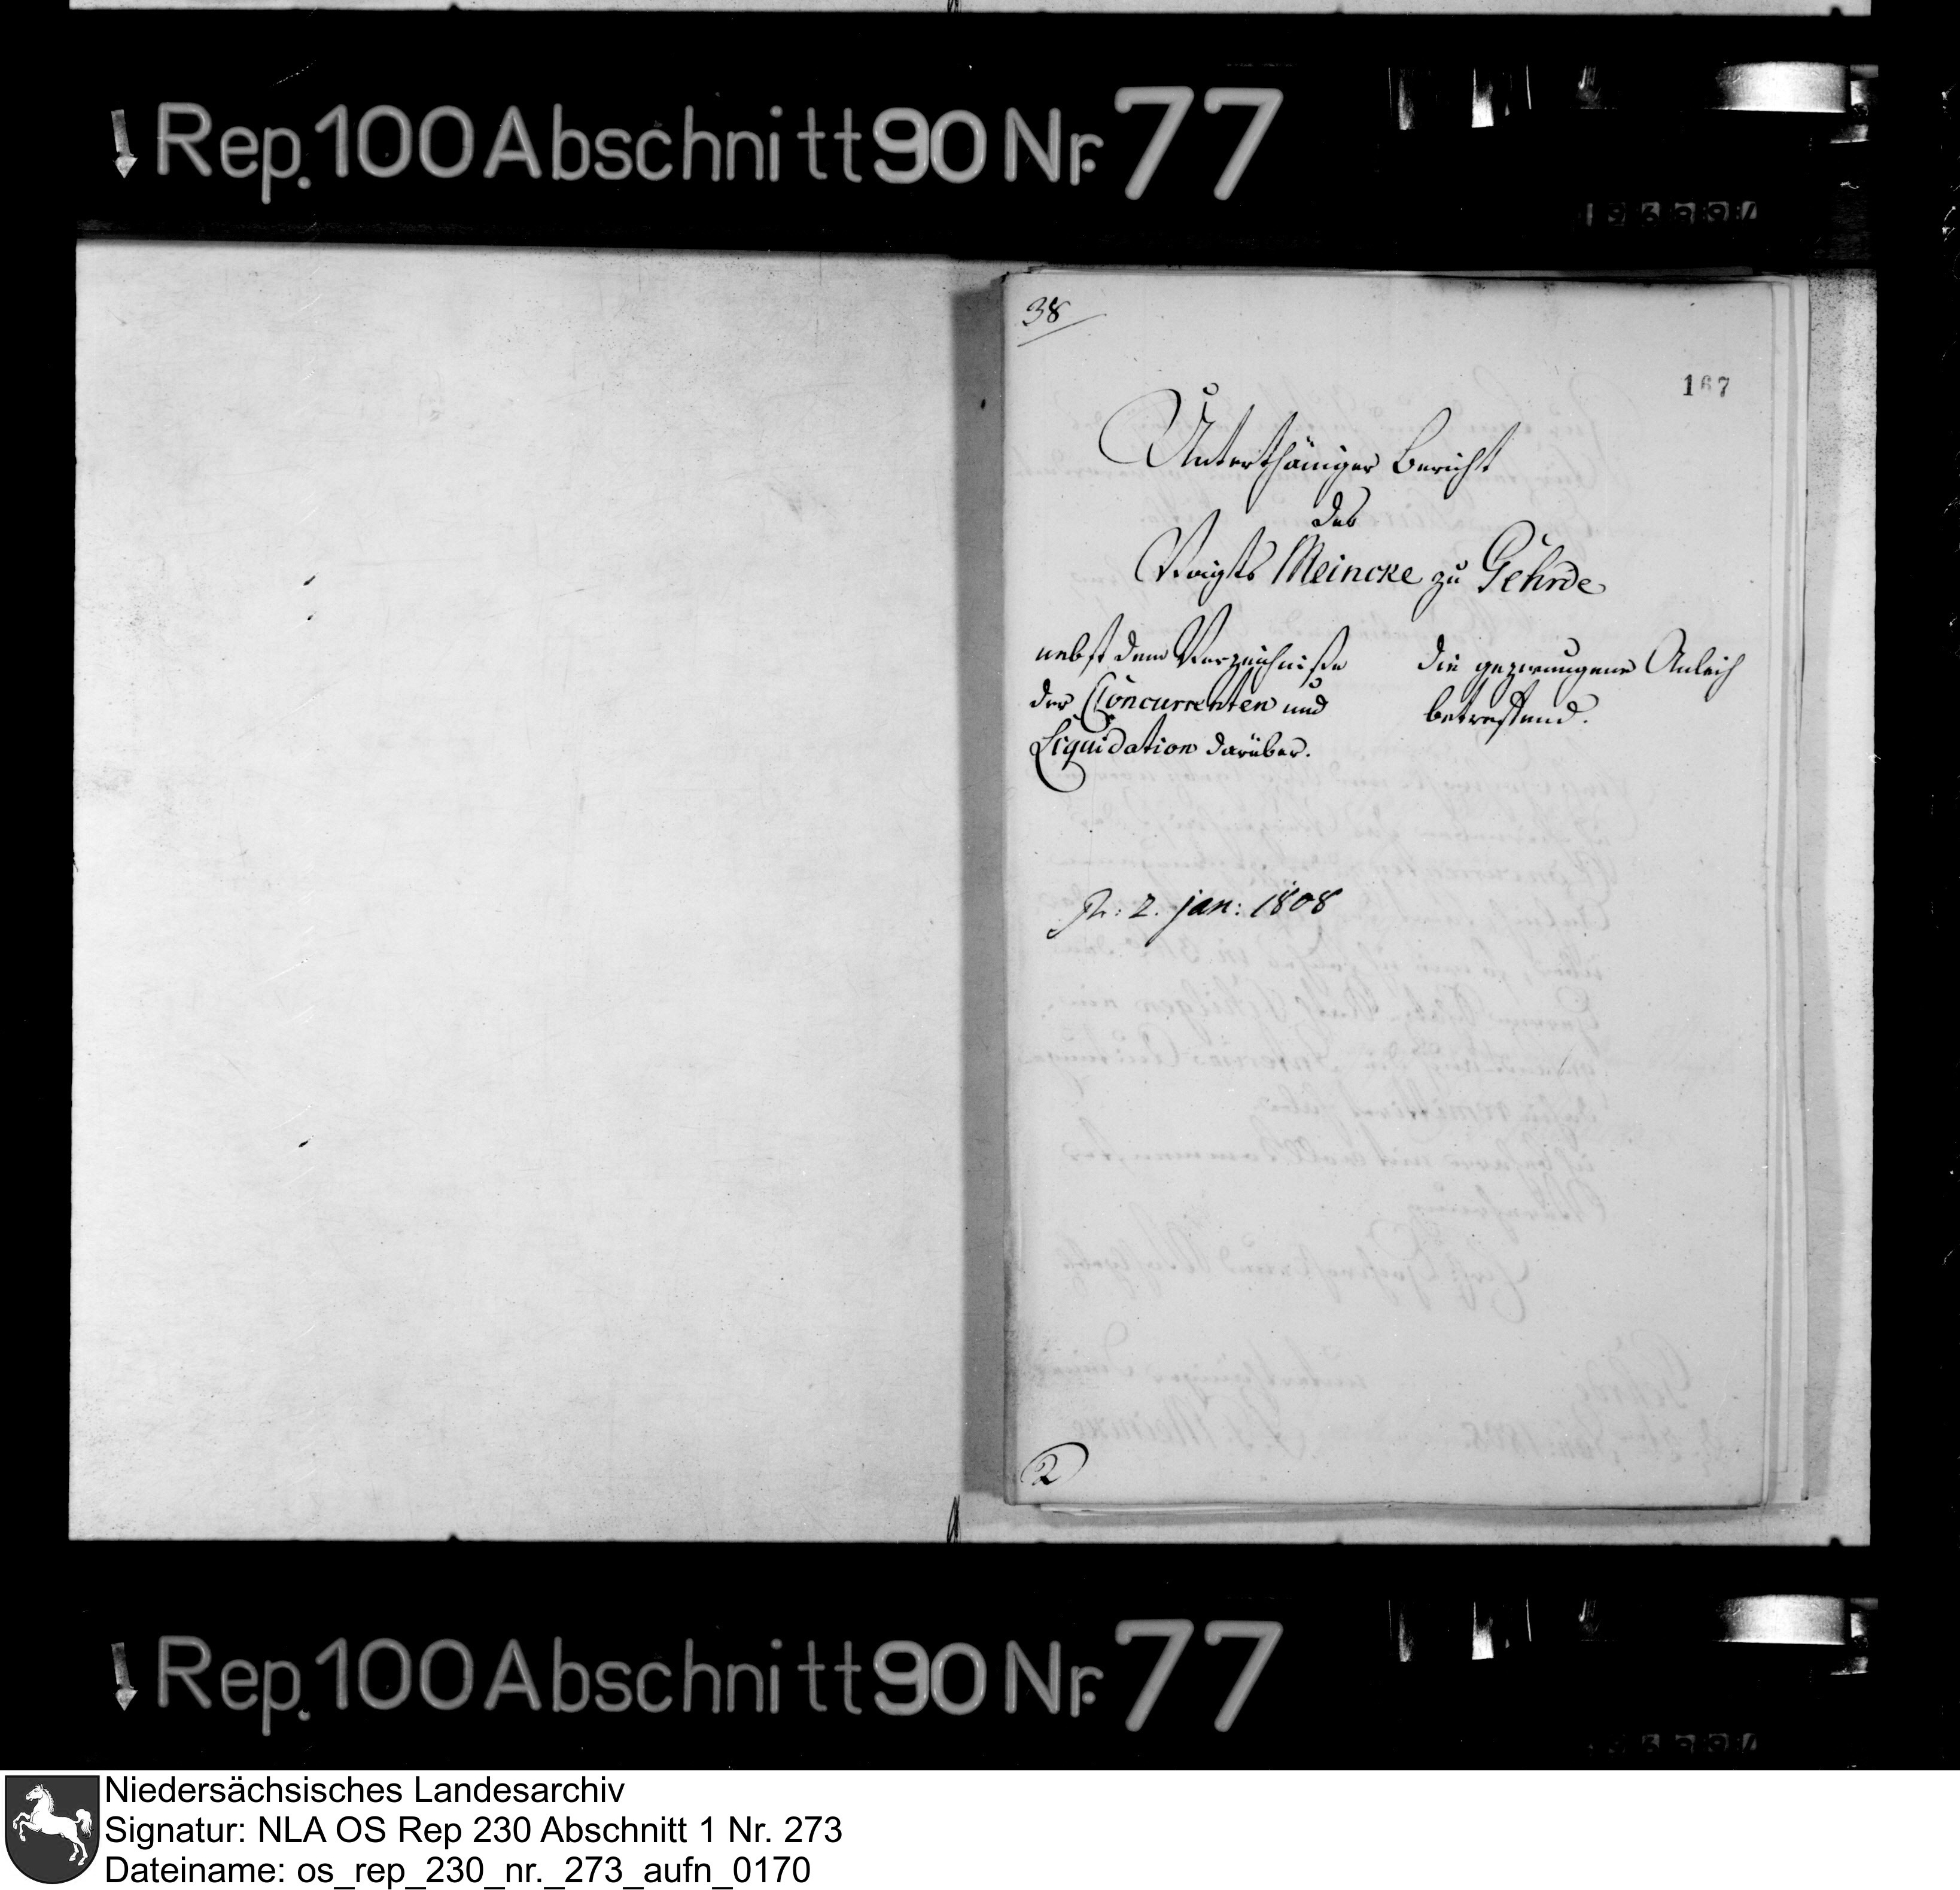 Rep. 100 Abschnitt 90 Nr. 77
38
167
Unterthäniger Bericht
des
Voigts Meincke zu Gehrde
nebst dem Verzeichniße
der Concurrenten und
Liquidation darüber.
die gezwungene Anleih
betreffend.
Pr: 2. jan: 1808
2
Rep. 100 Abschnitt 90 Nr. 77
Niedersächsisches Landesarchiv
Signatur: NLA OS Rep 230 Abschnitt 1 Nr. 273
Dateiname: os_rep_230_nr._273_aufn_0170